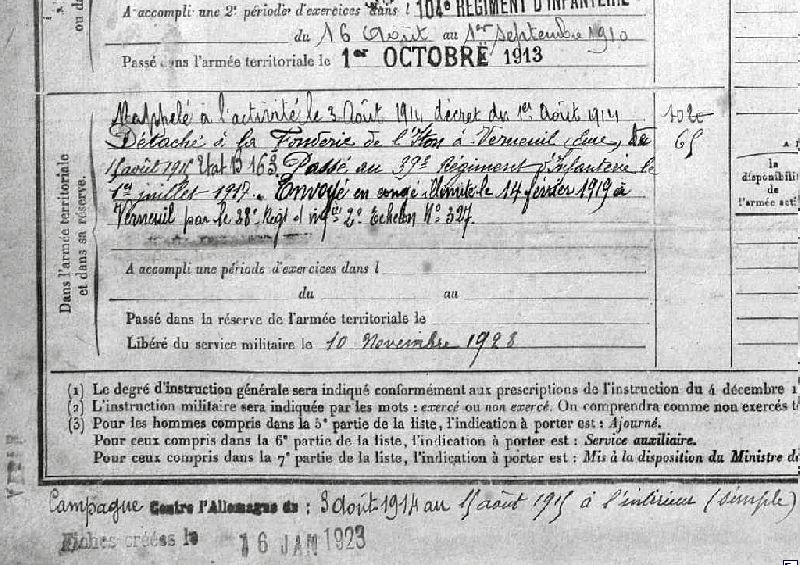 A accompli une 2e période d'exercices dans l 104e REGIMENT D'INFANTERIE
du 16 Août au 1er Septembre 1910
Passé dans l'armée territoriale le 1er OCTOBRE 1913
Rappelé à l'activité le 3 Août 1914, décret du 1er Août 1914
Détaché à la Fonderie de l'Iton à Verneuil, Eure, le
15 août 1915 Etat B 163. Passé au 39e Régiment d'Infanterie le
1er juillet 1917. Envoyé en congé illimité le 14 février 1919 à
Verneuil par le 38e Régt d 2e Echelon No 327
Dans l'armée territoriale
et dans sa réserve.
A accompli une période d'exercices dans l
du au
Passé dans la réserve de l'armée territoriale le
Libéré du service militaire le 10 Novembre 1928
65
la
disponibili
de
l'armée acti
(1) Le degré d'instruction générale sera indiqué conformément aux prescriptions de l'instruction du 4 décembre 1
(2) L'instruction militaire sera indiquée par les mots : exercé ou non exercé. On comprendra comme non exercés t
(3) Pour les hommes compris dans la 5e partie de la liste, l'indication à porter est : Ajourné.
Pour ceux compris dans la 6e partie de la liste, l'indication à porter est : Service auxiliaire.
Pour ceux compris dans la 7e partie de la liste, l'indication à porter est : Mis à la disposition du Ministre d
Campagne Contre l'Allemagne du : 3 août 1914 au 15 août 1915 à l'intérieur (simple)
Fiches créées le 16 JAN 1923